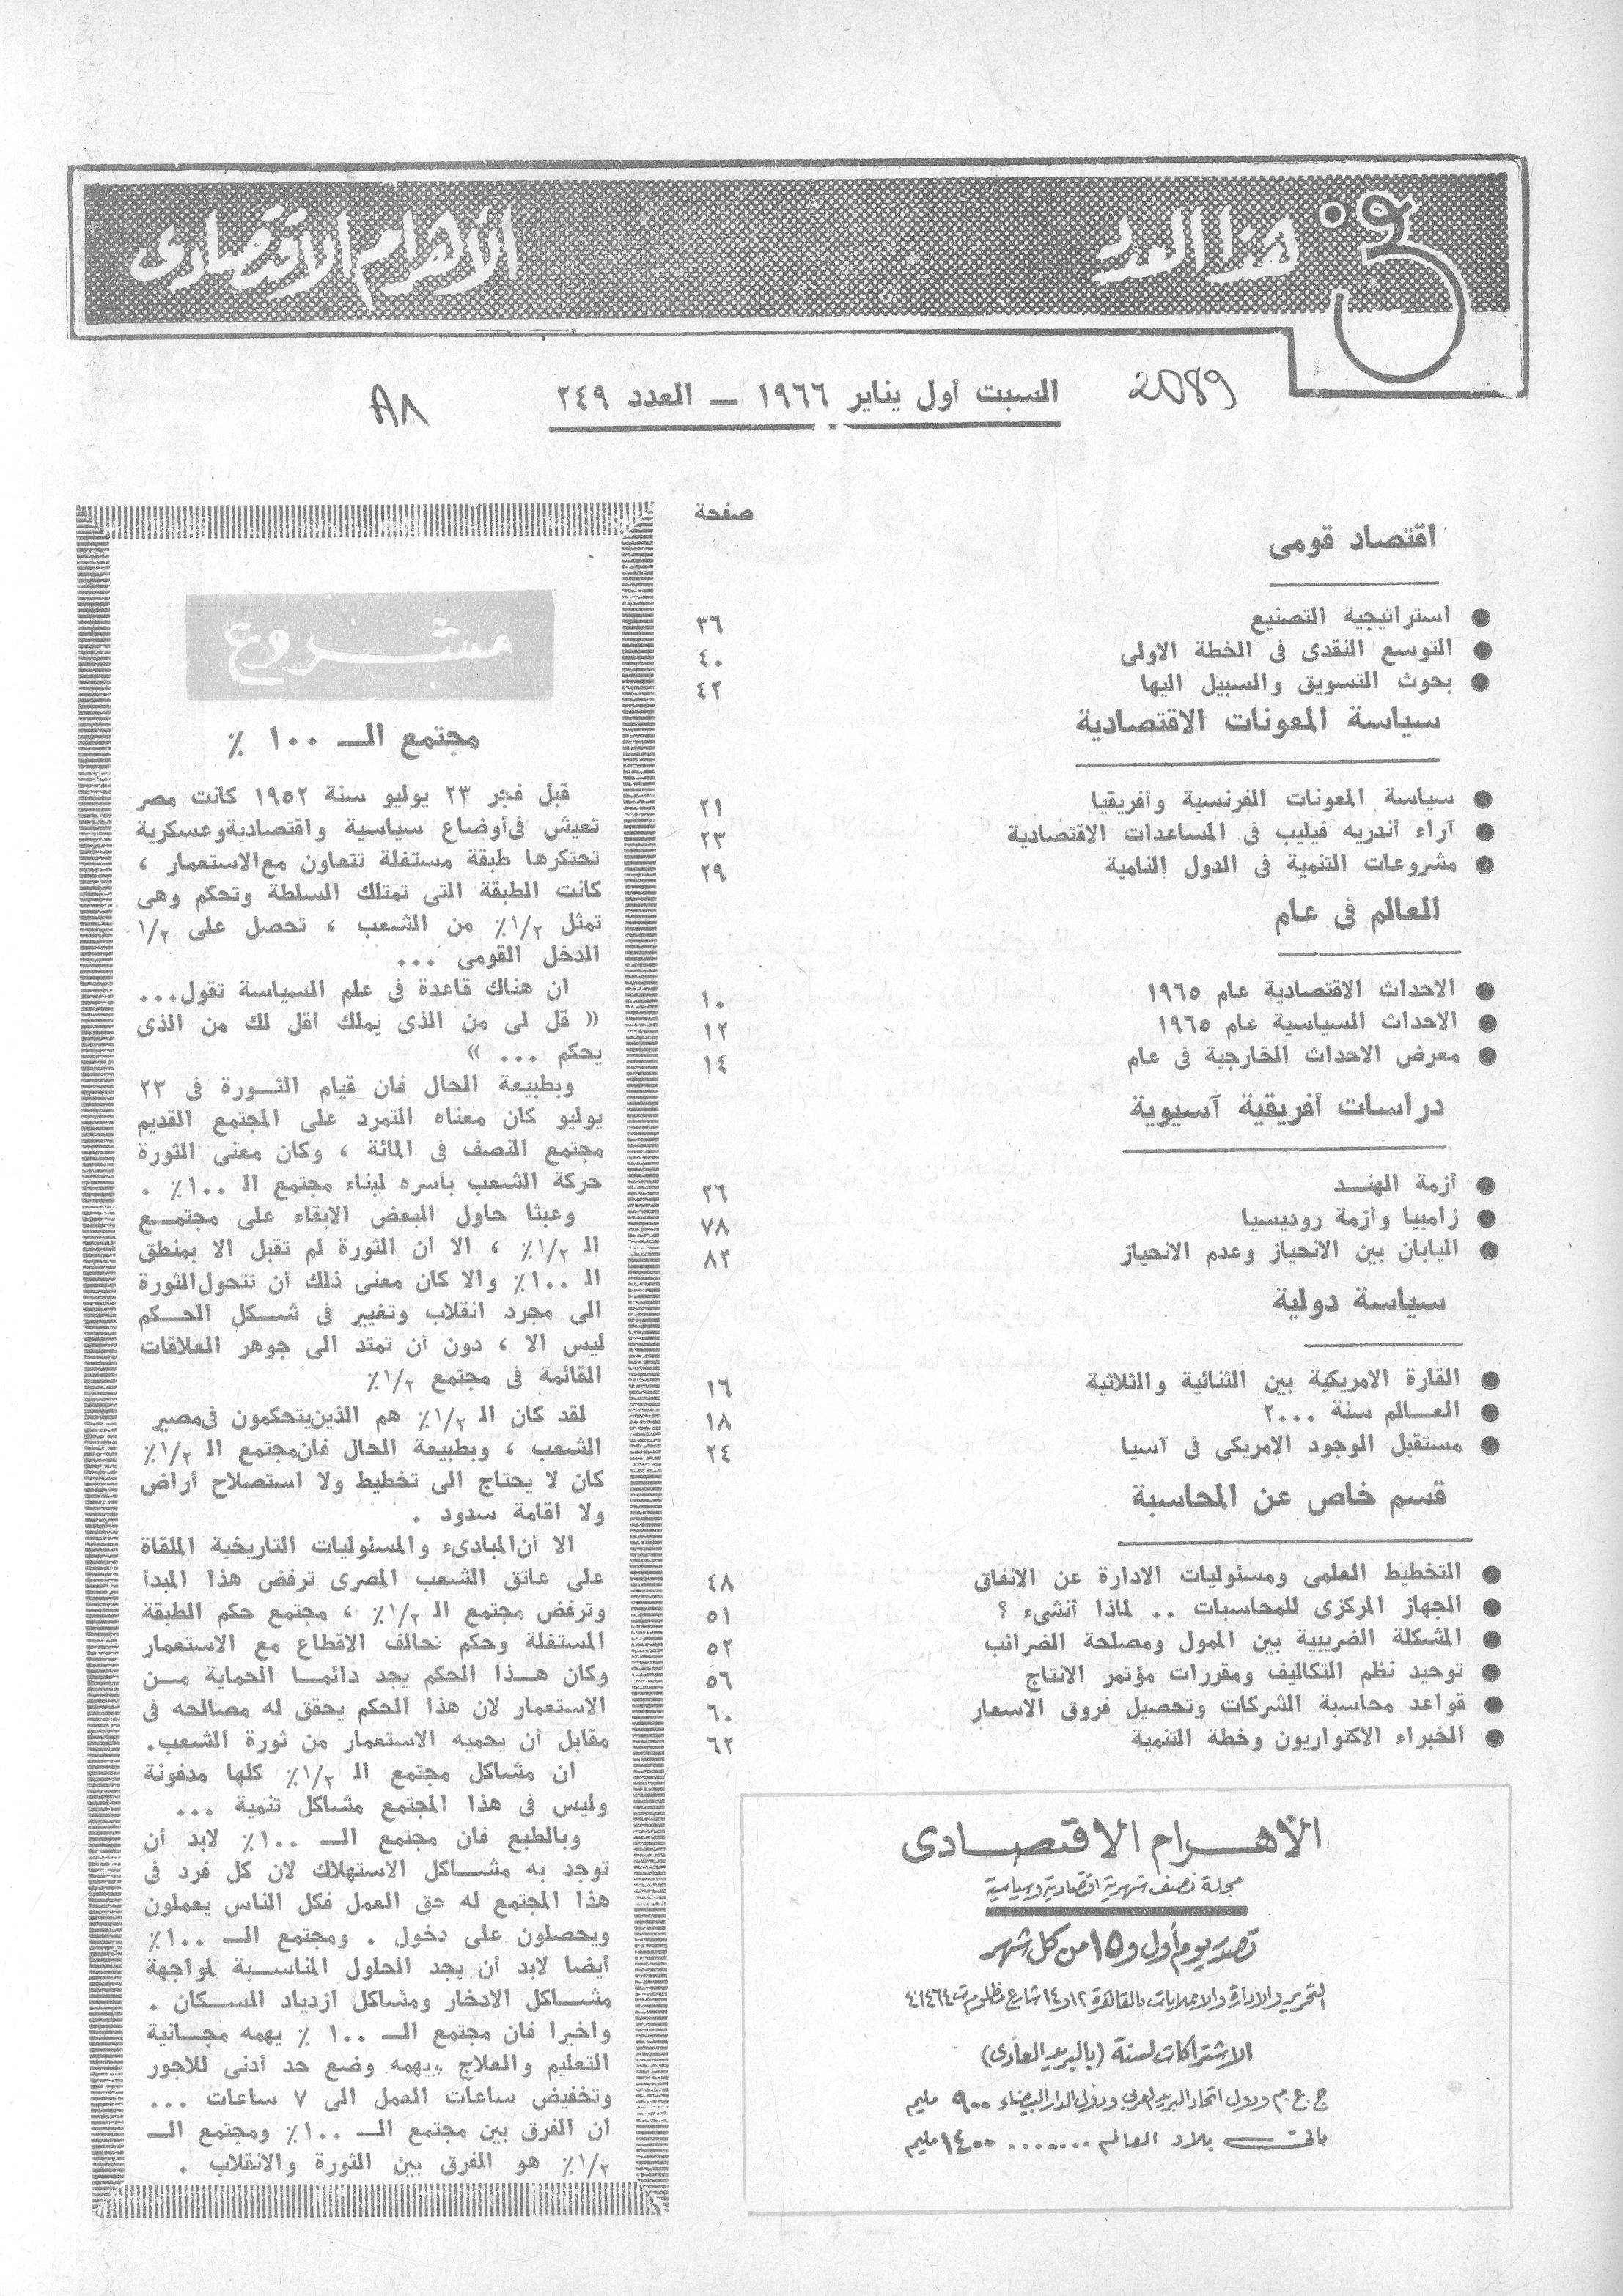 في هذا العدد
الأهرام الاقتصادى
2089
السبت أول يناير ١٩٦٦ — العدد ٢٤٩
A٨
صفحة
اقتصاد قومى
● استراتيجية التصنيع ٣٦
● التوسع النقدى فى الخطة الاولى ٤٠
● بحوث التسويق والسبيل اليها ٤٢
سياسة المعونات الاقتصادية
● سياسة المعونات الفرنسية وأفريقيا ٢١
● آراء أندريه فيليب فى المساعدات الاقتصادية ٢٣
● مشروعات التنمية فى الدول النامية ٢٩
العالم فى عام
● الاحداث الاقتصادية عام ١٩٦٥ ١٠
● الاحداث السياسية عام ١٩٦٥ ١٢
● معرض الاحداث الخارجية فى عام ١٤
دراسات أفريقية آسيوية
● أزمة الهنــد ٢٦
● زامبيا وأزمة روديسيا ٧٨
● اليابان بين الانحياز وعدم الانحياز ٨٢
سياسة دولية
● القارة الامريكية بين الثنائية والثلاثية ١٦
● العــالم سنة ٢٠٠٠ ١٨
● مستقبل الوجود الامريكى فى آسيا ٢٤
قسم خاص عن المحاسبة
● التخطيط العلمى ومسئوليات الادارة عن الانفاق ٤٨
● الجهاز المركزى للمحاسبات .. لماذا أنشىء ؟ ٥١
● المشكلة الضريبية بين الممول ومصلحة الضرائب ٥٢
● توحيد نظم التكاليف ومقررات مؤتمر الانتاج ٥٦
● قواعد محاسبة الشركات وتحصيل فروق الاسعار ٦٠
● الخبراء الاكتواريون وخطة التنمية ٦٢
الأهــرام الاقتصــادى
مجلة نصف شهرية اقتصادية وسياسية
تصدر يوم أول و ١٥ من كل شهر
التحرير والادارة والاعلانات بالقاهرة ١٢ و ١٤ شارع مظلوم ت ٤١٤٦٤
الاشتراكات لسنة (بالبريد العادى)
ج.ع.م ودول اتحاد البريد العربى ودول الدار البيضاء ٩٠٠ مليم
باقى بلاد العالم ........ ١٤٠٠ مليم
مشــروع
مجتمع الــ ١٠٠ ٪
قبل فجر ٢٣ يوليو سنة ١٩٥٢ كانت مصر
تعيش فى أوضاع سياسية واقتصادية وعسكرية
تحتكرها طبقة مستغلة تتعاون مع الاستعمار ،
كانت الطبقة التى تمتلك السلطة وتحكم وهى
تمثل ١/٢٪ من الشعب ، تحصل على ١/٢
الدخل القومى ...
ان هناك قاعدة فى علم السياسة تقول...
« قل لى من الذى يملك أقل لك من الذى
يحكم ... »
وبطبيعة الحال فان قيام الثــورة فى ٢٣
يوليو كان معناه التمرد على المجتمع القديم
مجتمع النصف فى المائة ، وكان معنى الثورة
حركة الشعب بأسره لبناء مجتمع الـ ١٠٠٪ .
وعبثا حاول البعض الابقاء على مجتمــع
الـ ١/٢٪ ، الا أن الثورة لم تقبل الا بمنطق
الـ ١٠٠٪ والا كان معنى ذلك أن تتحول الثورة
الى مجرد انقلاب وتغيير فى شــكل الحــكم
ليس الا ، دون أن تمتد الى جوهر العلاقات
القائمة فى مجتمع ١/٢٪
لقد كان الـ ١/٢٪ هم الذين يتحكمون فى مصير
الشعب ، وبطبيعة الحال فان مجتمع الـ ١/٢٪
كان لا يحتاج الى تخطيط ولا استصلاح أراض
ولا اقامة سدود .
الا أن المبادىء والمسئوليات التاريخية الملقاة
على عاتق الشعب المصرى ترفض هذا المبدأ
وترفض مجتمع الـ ١/٢٪ ، مجتمع حكم الطبقة
المستغلة وحكم تحالف الاقطاع مع الاستعمار
وكان هــذا الحكم يجد دائمــا الحماية مــن
الاستعمار لان هذا الحكم يحقق له مصالحه فى
مقابل أن يحميه الاستعمار من ثورة الشعب.
ان مشاكل مجتمع الـ ١/٢٪ كلها مدفونة
وليس فى هذا المجتمع مشاكل تنمية ...
وبالطبع فان مجتمع الــ ١٠٠٪ لابد أن
توجد به مشــاكل الاستهلاك لان كل فرد فى
هذا المجتمع له حق العمل فكل الناس يعملون
ويحصلون على دخول . ومجتمع الــ ١٠٠٪
أيضا لابد أن يجد الحلول المناســبة لمواجهة
مشــاكل الادخار ومشاكل ازدياد الســكان .
واخيرا فان مجتمع الــ ١٠٠ ٪ يهمه مجــانية
التعليم والعلاج ويهمه وضع حد أدنى للاجور
وتخفيض ساعات العمل الى ٧ ساعات ...
ان الفرق بين مجتمع الــ ١٠٠٪ ومجتمع الــ
١/٢٪ هو الفرق بين الثورة والانقلاب .